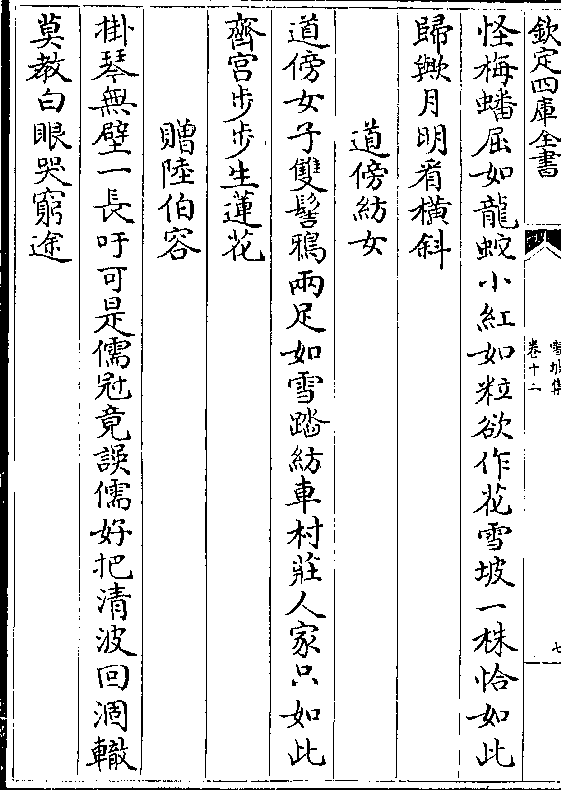 欽定四庫全書
雪坡集
卷十二
七
怪梅蟠屈如龍蛇小紅如粒欲作花雪坡一株恰如此
歸歟月明看橫斜
道傍紡女
道傍女子雙髻鴉兩足如雪踏紡車村莊人家只如此
齊宮步步生蓮花
贈陸伯容
掛琴無壁一長吁可是儒冠竟誤儒好把清波回涸轍
莫教白眼哭窮途